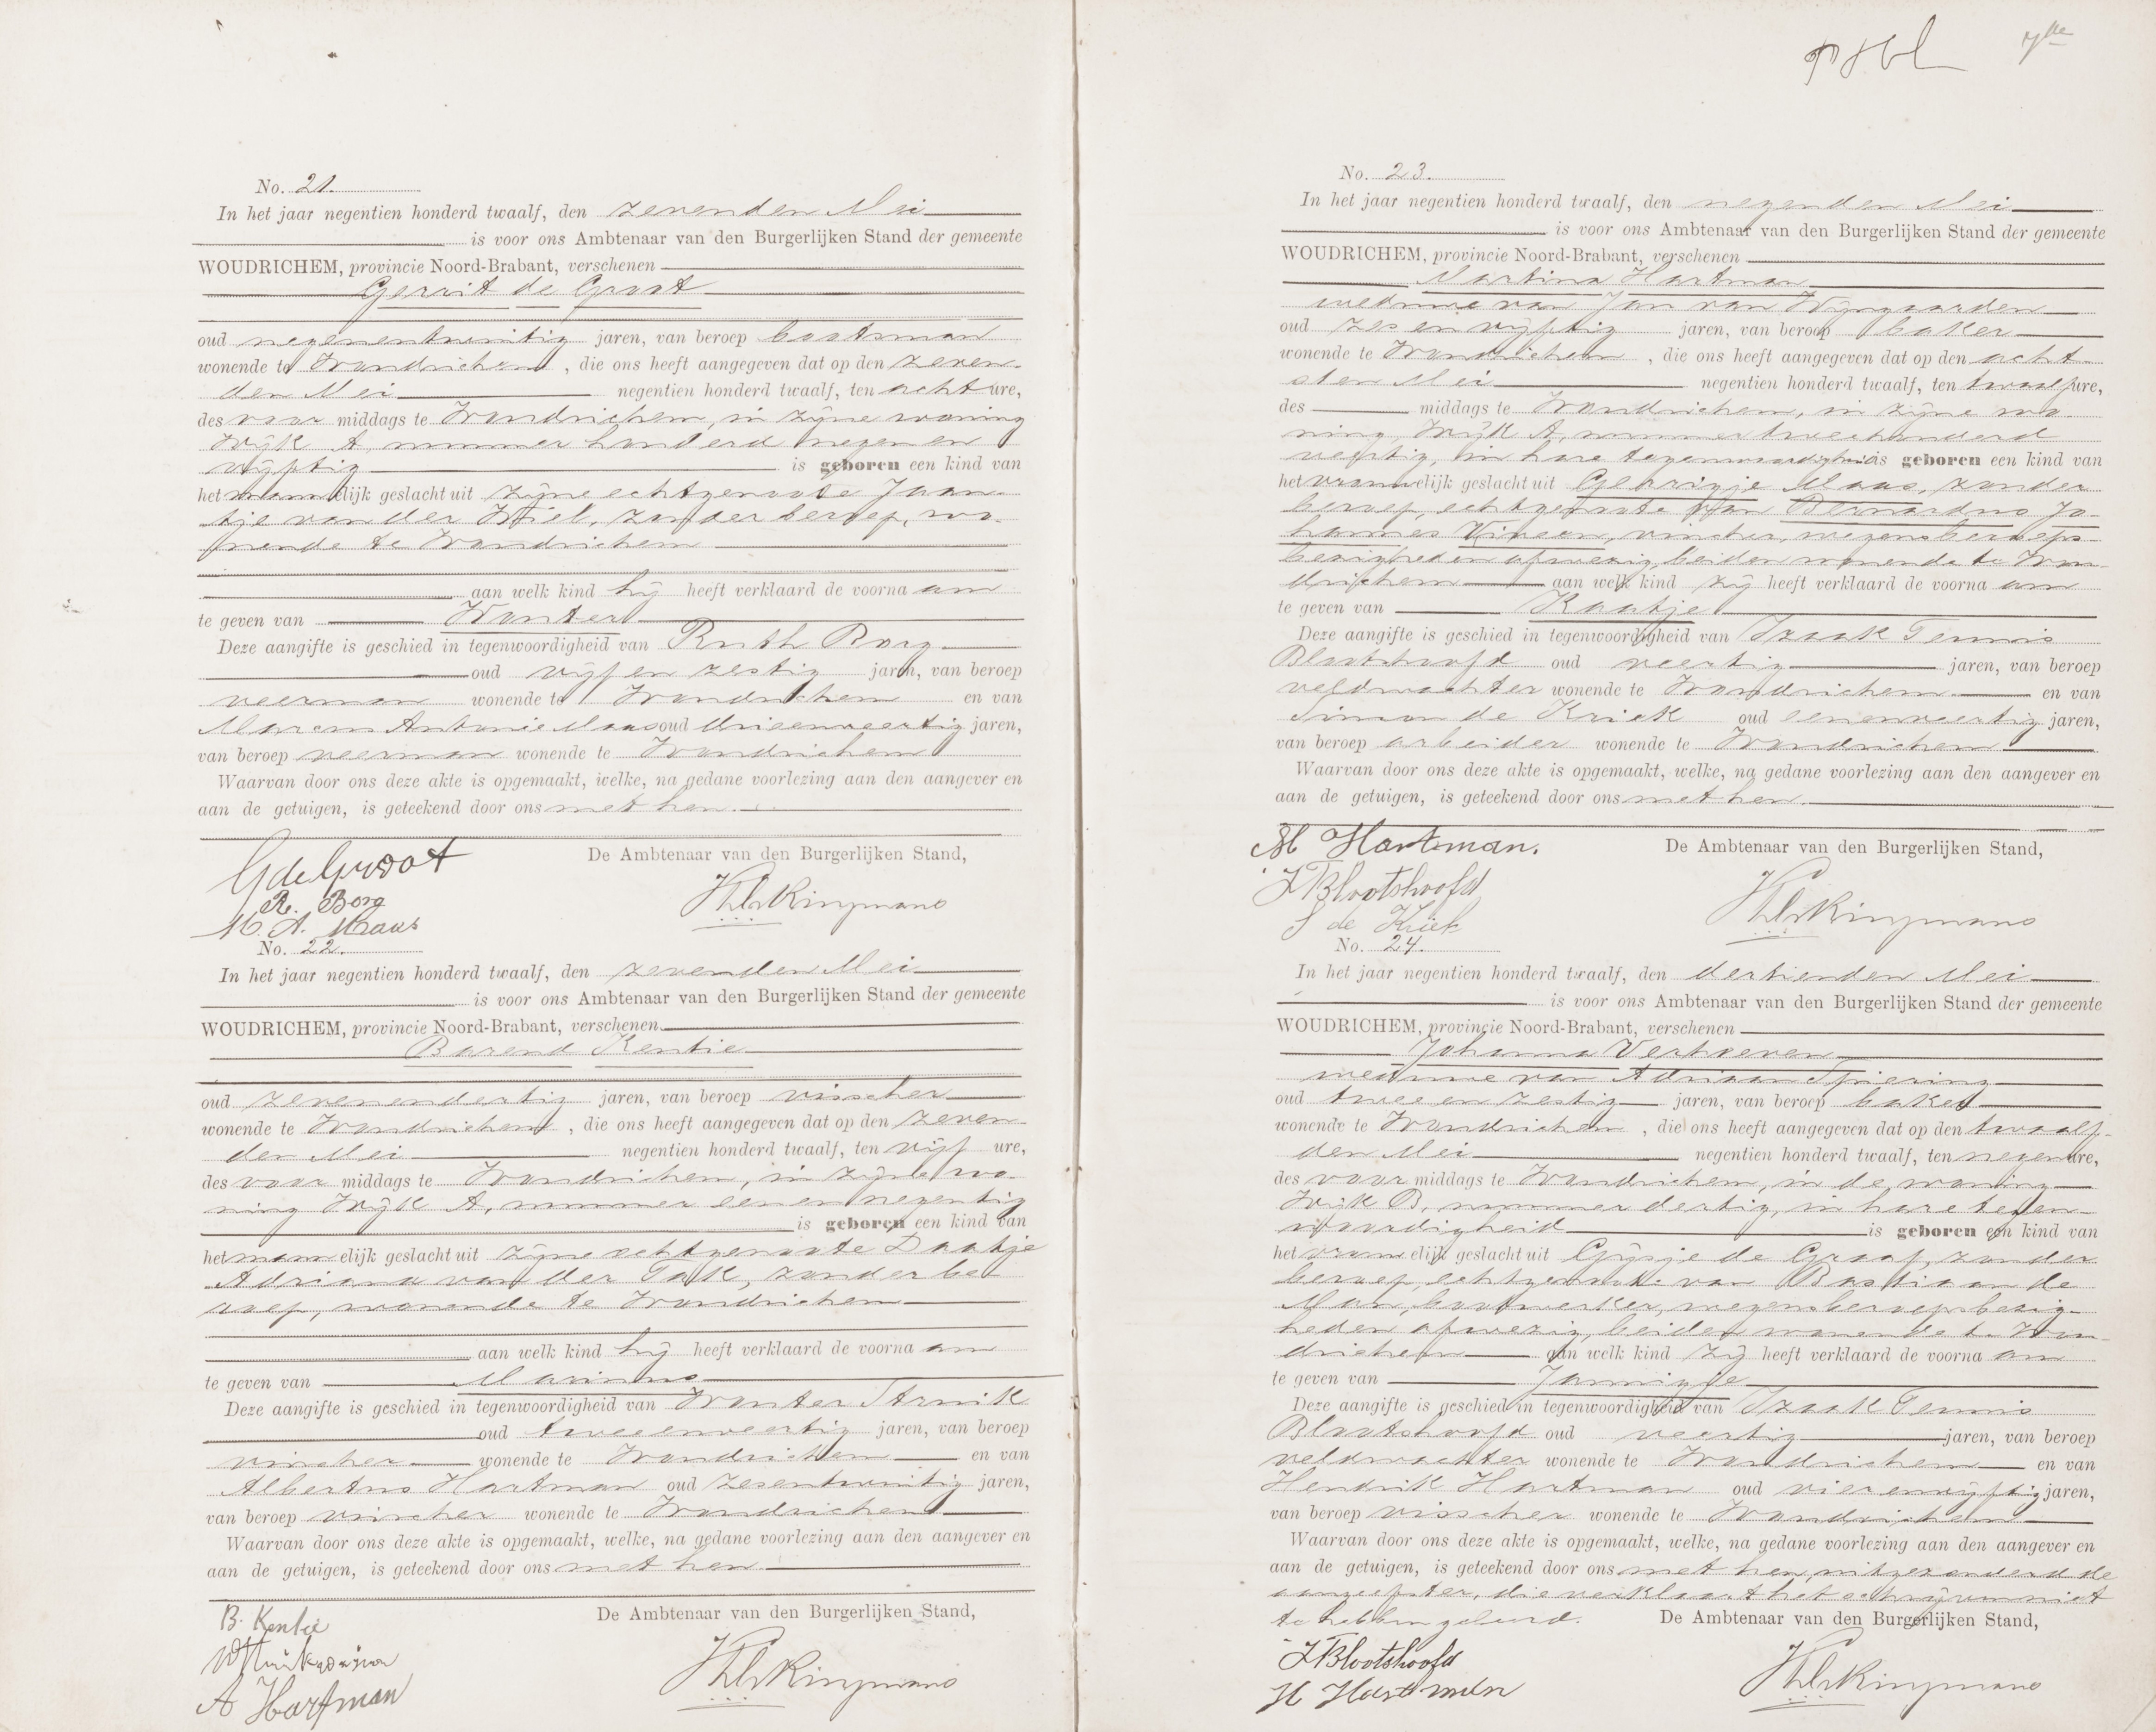 No. 21.
In het jaar negentien honderd twaalf, den zevenden Mei
is voor ons Ambtenaar van den Burgerlijken Stand der gemeente
WOUDRICHEM, provincie Noord-Brabant, verschenen
Gerrit de Groot
oud negenentwintig jaren, van beroep bootsman
wonende te Woudrichem, die ons heeft aangegeven dat op den zeven-
den Mei negentien honderd twaalf, ten acht ure,
des voor middags te Woudrichem, in zijne woning
Wijk A, nummer honderd negen en
vijftig is geboren een kind van
het mannelijk geslacht uit zijne echtgenoote Jaan-
tje van der Wiel, zonder beroep, wo-
nende te Woudrichem
aan welk kind hij heeft verklaard de voorna am
te geven van Wouter
Deze aangifte is geschied in tegenwoordigheid van Ruth Borg
oud vijf en zestig jaren, van beroep
veerman wonende te Woudrichem en van
Marcus Antonie Maas oud drieenveertig jaren,
van beroep veerman wonende te Woudrichem
Waarvan door ons deze akte is opgemaakt, welke, na gedane voorlezing aan den aangever en
aan de getuigen, is geteekend door ons met hen.
G de Groot
De Ambtenaar van den Burgerlijken Stand,
R. Borg
M. A. Maas
No. 22.
In het jaar negentien honderd twaalf, den zevenden Mei
is voor ons Ambtenaar van den Burgerlijken Stand der gemeente
WOUDRICHEM, provincie Noord-Brabant, verschenen
Barend Kentie
oud zevenendertig jaren, van beroep visscher
wonende te Woudrichem, die ons heeft aangegeven dat op den zeven
den Mei negentien honderd twaalf, ten vijf ure,
des voor middags te Woudrichem, in zijne wo-
ning Wijk A, nummer eenennegentig
is geboren een kind van
het mannelijk geslacht uit zijne echtgenoote Daatje
Adriana van der Tak, zonder be
roep, wonende te Woudrichem
aan welk kind hij heeft verklaard de voorna am
te geven van Marinus
Deze aangifte is geschied in tegenwoordigheid van Wouter Struik
oud tweeenveertig jaren, van beroep
visscher wonende te Woudrichem en van
Albertus Hartman oud zesentwintig jaren,
van beroep visscher wonende te Woudrichem
Waarvan door ons deze akte is opgemaakt, welke, na gedane voorlezing aan den aangever en
aan de getuigen, is geteekend door ons met hen.
B. Kentie
De Ambtenaar van den Burgerlijken Stand,
A Hartman
No. 23.
In het jaar negentien honderd twaalf, den negenden Mei
is voor ons Ambtenaar van den Burgerlijken Stand der gemeente
WOUDRICHEM, provincie Noord-Brabant, verschenen
Martina Hartman
weduwe van Jan van Wijngaarden
oud zes en vijftig jaren, van beroep baker
wonende te Woudrichem, die ons heeft aangegeven dat op den acht-
sten Mei negentien honderd twaalf, ten twaalf ure,
des middags te Woudrichem, in zijne wo-
ning, Wijk A, nummer tweehonderd
veertig, in hare tegenwoordigheid is geboren een kind van
het vrouwelijk geslacht uit Geerigje Maas, zonder
beroep, echtgenoote van Bernardus Jo-
hannes Vineen, visscher, wegens beroeps-
bezigheden afwezig, beiden wonende te Wou-
drichem aan welk kind zij heeft verklaard de voorna am
te geven van Kaatje
Deze aangifte is geschied in tegenwoordigheid van Izaak Teunis
Blootshoofd oud veertig jaren, van beroep
veldwachter wonende te Woudrichem en van
Simon de Kriek oud eenenveertig jaren,
van beroep arbeider wonende te Woudrichem
Waarvan door ons deze akte is opgemaakt, welke, na gedane voorlezing aan den aangever en
aan de getuigen, is geteekend door ons met hen.
M Hartman.
De Ambtenaar van den Burgerlijken Stand,
I Blootshoofd
S de Kriek
No. 24.
In het jaar negentien honderd twaalf, den dertienden Mei
is voor ons Ambtenaar van den Burgerlijken Stand der gemeente
WOUDRICHEM, provincie Noord-Brabant, verschenen
Johanna Verhoeven
weduwe van Adriaan Spiering
oud twee en zestig jaren, van beroep baker
wonende te Woudrichem, die ons heeft aangegeven dat op den twaalf-
den Mei negentien honderd twaalf, ten negen ure,
des voor middags te Woudrichem, in de woning
Wijk B, nummer dertig, in hare tegen-
woordigheid is geboren een kind van
het vrouwelijk geslacht uit Gijsje de Graaf, zonder
beroep, echtgenoote van Bastiaan de
Man, bootwerker, wegens beroepsbezig-
heden afwezig, beiden wonende te Wou-
drichem aan welk kind zij heeft verklaard de voorna am
te geven van Jannigje
Deze aangifte is geschied in tegenwoordigheid van Izaak Teunis
Blootshoofd oud veertig jaren, van beroep
veldwachter wonende te Woudrichem en van
Hendrik Hartman oud vierenvijftig jaren,
van beroep visscher wonende te Woudrichem
Waarvan door ons deze akte is opgemaakt, welke, na gedane voorlezing aan den aangever en
aan de getuigen, is geteekend door ons met hen, uitgezonderd de
aangeefster, die verklaart het schrijven niet
te hebben geleerd.
De Ambtenaar van den Burgerlijken Stand,
I Blootshoofd
H Hartman